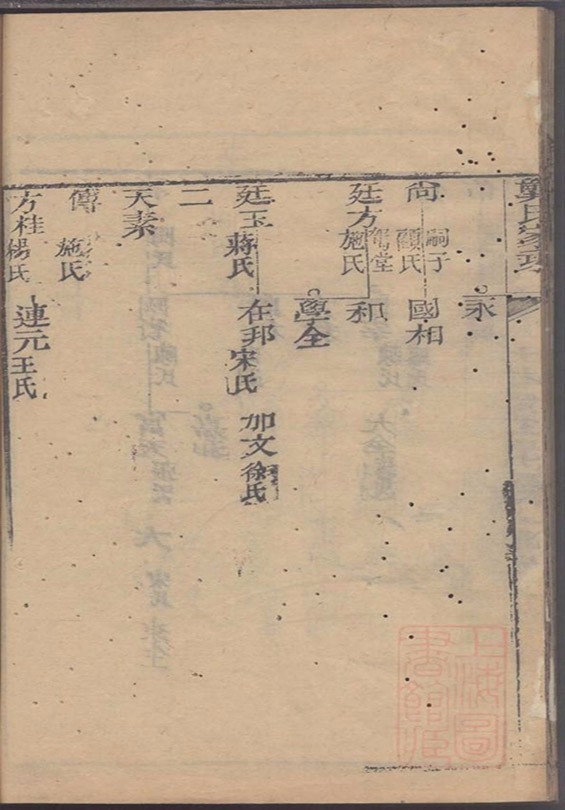 鄭氏家乘
永
尚 顧氏 嗣子 國相
廷方 施氏 堂 和
學全
廷玉 蔣氏 在邦 宋氏 加文 徐氏
二
天素
傳 施氏
方桂 楊氏 連元 王氏
上海圖書館藏